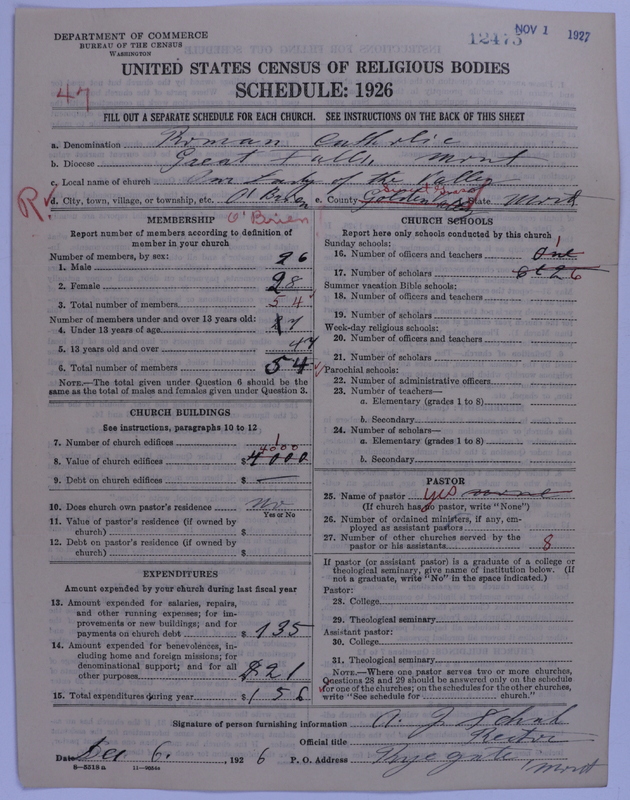 DEPARTMENT OF COMMERCE
BUREAU OF THE CENSUS
WASHINGTON
12475 NOV 1 1927
UNITED STATES CENSUS OF RELIGIOUS BODIES
SCHEDULE: 1926
47
FILL OUT A SEPARATE SCHEDULE FOR EACH CHURCH. SEE INSTRUCTIONS ON THE BACK OF THIS SHEET
a. Denomination Roman Catholic
b. Diocese Great Falls, Mont
c. Local name of church Our Lady of the Valley
R.
d. City, town, village, or township, etc. O'Brien e. County Golden Valley Sweet Grass State Mont
MEMBERSHIP O'Brien
Report number of members according to definition of
member in your church
Number of members, by sex:
1. Male 26
2. Female 28
3. Total number of members 54
Number of members under and over 13 years old:
4. Under 13 years of age 7
5. 13 years old and over 47
6. Total number of members 54
NOTE.—The total given under Question 6 should be the
same as the total of males and females given under Question 3.
CHURCH BUILDINGS
See instructions, paragraphs 10 to 12
7. Number of church edifices 1
4000
8. Value of church edifices $ 4000
9. Debt on church edifices $ —
10. Does church own pastor's residence No
Yes or No
11. Value of pastor's residence (if owned by
church) $
12. Debt on pastor's residence (if owned by
church) $
EXPENDITURES
Amount expended by your church during last fiscal year
13. Amount expended for salaries, repairs,
and other running expenses; for im-
provements or new buildings; and for
payments on church debt $ 135
14. Amount expended for benevolences, in-
cluding home and foreign missions; for
denominational support; and for all
other purposes $21
15. Total expenditures during year $ 156
CHURCH SCHOOLS
Report here only schools conducted by this church
Sunday schools:
1
16. Number of officers and teachers One
17. Number of scholars 26
Summer vacation Bible schools:
18. Number of officers and teachers
19. Number of scholars
Week-day religious schools:
20. Number of officers and teachers
21. Number of scholars
Parochial schools:
22. Number of administrative officers
23. Number of teachers—
a. Elementary (grades 1 to 8)
b. Secondary
24. Number of scholars—
a. Elementary (grades 1 to 8)
b. Secondary
PASTOR
25. Name of pastor yes none
(If church has no pastor, write "None")
26. Number of ordained ministers, if any, em-
ployed as assistant pastors
27. Number of other churches served by the
pastor or his assistants 8
If pastor (or assistant pastor) is a graduate of a college or
theological seminary, give name of institution below. (If
not a graduate, write "No" in the space indicated.)
Pastor:
28. College
29. Theological seminary
Assistant pastor:
30. College
31. Theological seminary
NOTE.—Where one pastor serves two or more churches,
Questions 28 and 29 should be answered only on the schedule
for one of the churches; on the schedules for the other churches,
write "See schedule for church."
Signature of person furnishing information A. J. Schal
Official title Rector
Date Dec 6, 1926 P. O. Address Ryegate, Mont
8—5518 a